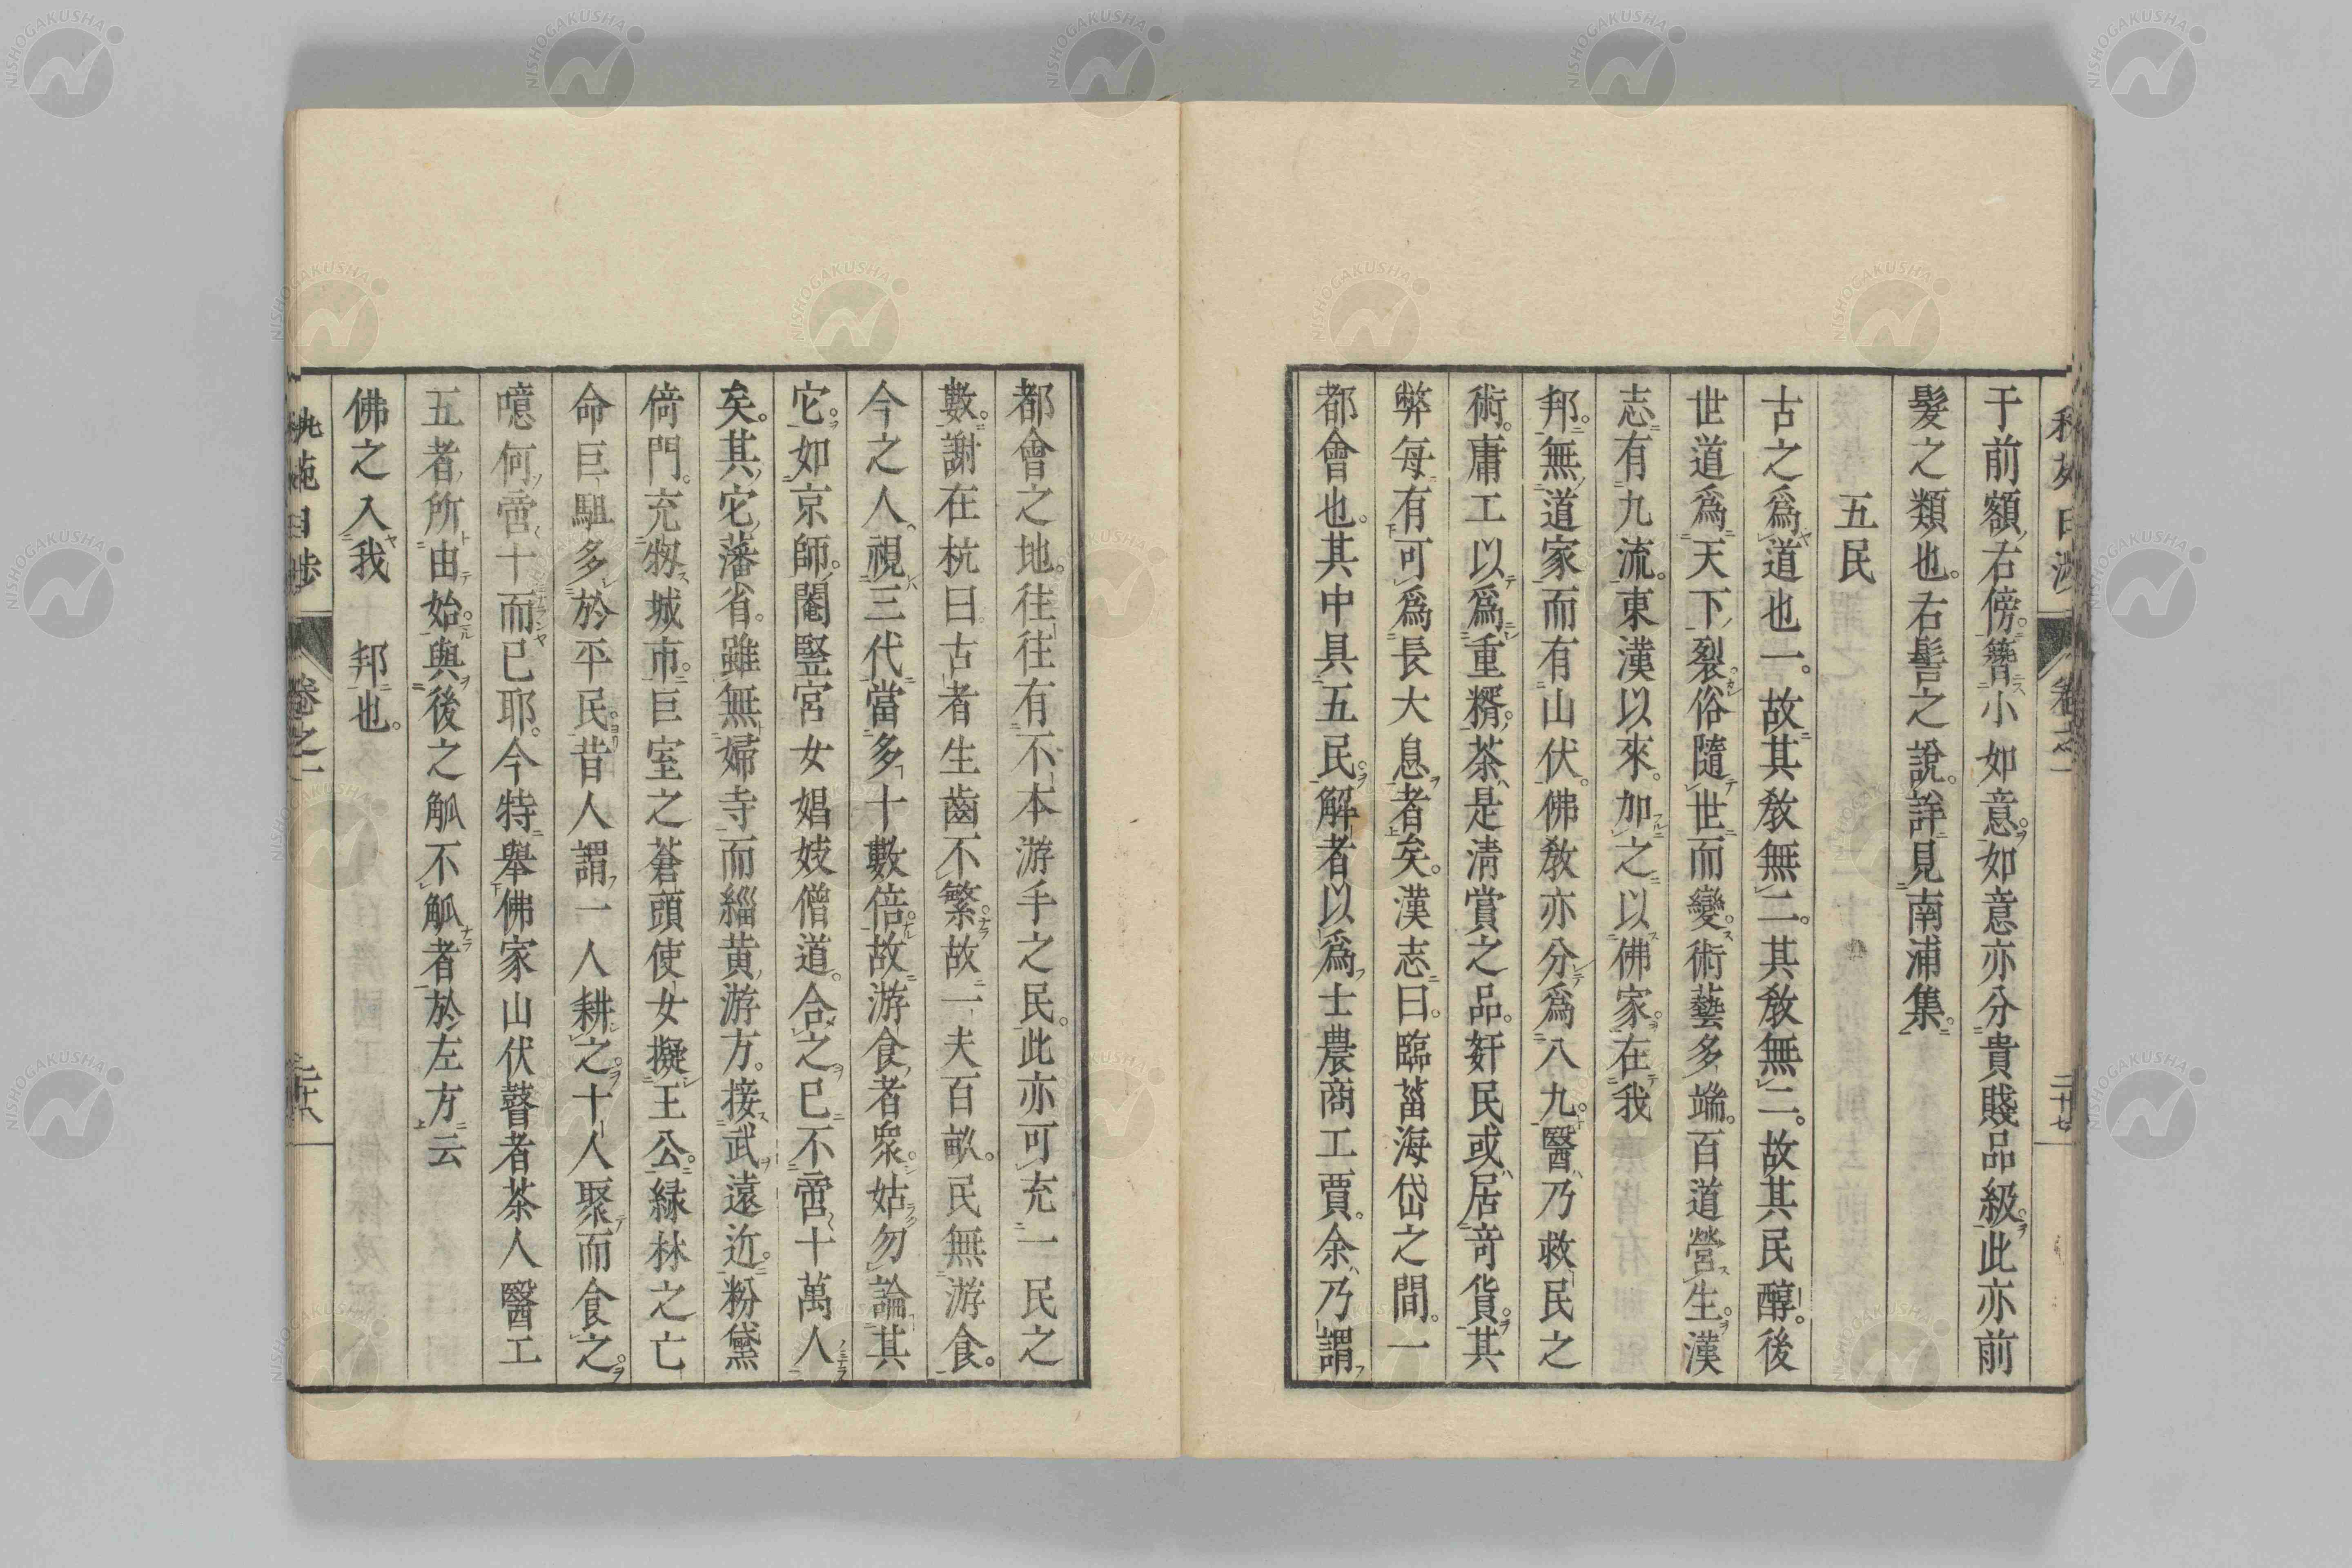 于前額右傍簪小如意如意亦分貴賤品級此亦前
髮之類也。右髻之說。詳見南浦集。
五民
古之爲道也一。故其教無二。其教無二。故其民醇。後
世道爲天下裂俗隨世而變。術藝多端。百道營生。漢
志有九流。東漢以來。加之以佛家。在我
邦。無道家而有山伏。佛教亦分爲八九。醫乃救民之
術。庸工以爲重糈。茶是清賞之品。奸民或居奇貨。其
弊每有可爲長大息者矣。漢志曰。臨菑海岱之間。一
都會也。其中具五民。解者以爲士農商工賈。余乃謂
都會之地。往往有不本游手之民。此亦可充一民之
數。謝在杭曰。古者生齒不繁。故一夫百畝。民無游食。
今之人。視三代當多十數倍。故游食者衆。姑勿論其
它。如京師。閹豎宮女娼妓僧道。合之已不啻十萬人
矣。其它藩省。雖無婦寺而緇黄游方。接武遠近。粉黛
倚門。充牣城市。巨室之蒼頭使女擬王公。緑林之亡
命巨駔多於平民。昔人謂一人耕之。十人聚而食之。
噫何啻十而已耶。今特舉佛家山伏瞽者茶人醫工
五者所由始與後之觚不觚者於左方云
佛之入我　邦也。
卷之一
二十七
卷之一
二十八